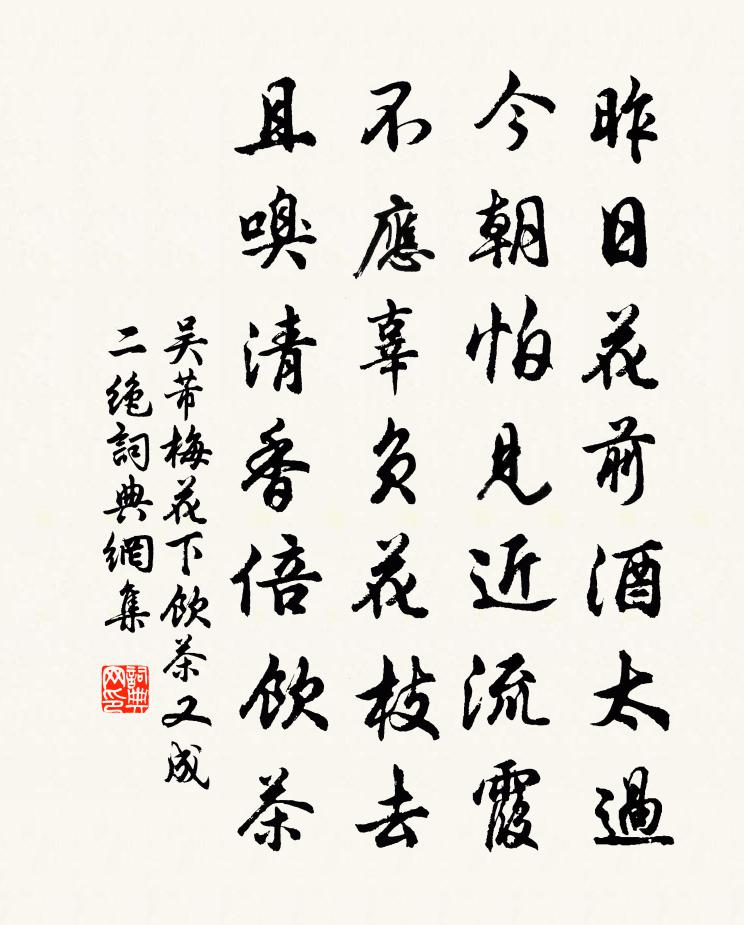 昨日花前酒太過
今朝怕見近流霞
不應辜負花枝去
且嗅清香倍飲茶
吴芾梅花下飲茶又成
二絶詞典網集
詞典
网印